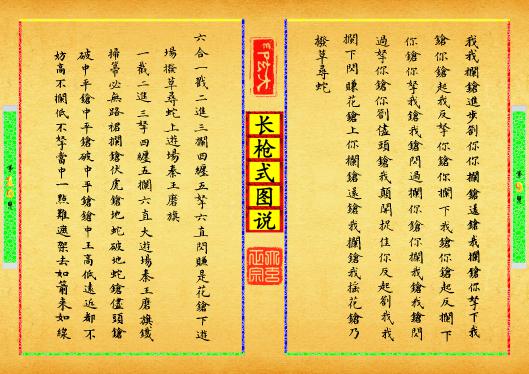 第 9 頁
我我攔鎗進步劄你你攔鎗還鎗我攔鎗你拏下我
鎗你鎗起我反拏你鎗你攔下我鎗你鎗起反攔下
你鎗你拏我鎗我鎗閃過攔你鎗你攔我鎗我鎗閃
過拏你鎗你劄儘頭鎗我顛閑捉住你反起劄我我
攔下閃賺花鎗上你攔鎗還鎗我攔鎗我搖花鎗乃
撥草尋蛇
长枪式图说
六合一截二進三攔四纏五拏六直閃賺是花鎗下遊
場撥草尋蛇上遊場秦王磨旗
一截二進三拏四纏五攔六直大遊場秦王磨旗鐵
掃箒必無路裙攔鎗伏虎鎗地蛇破地蛇鎗儘頭鎗
破中平鎗中平鎗破中平鎗鎗中王高低遠近都不
妨高不攔低不拏當中一點難遮架去如箭來如線
第 10 頁